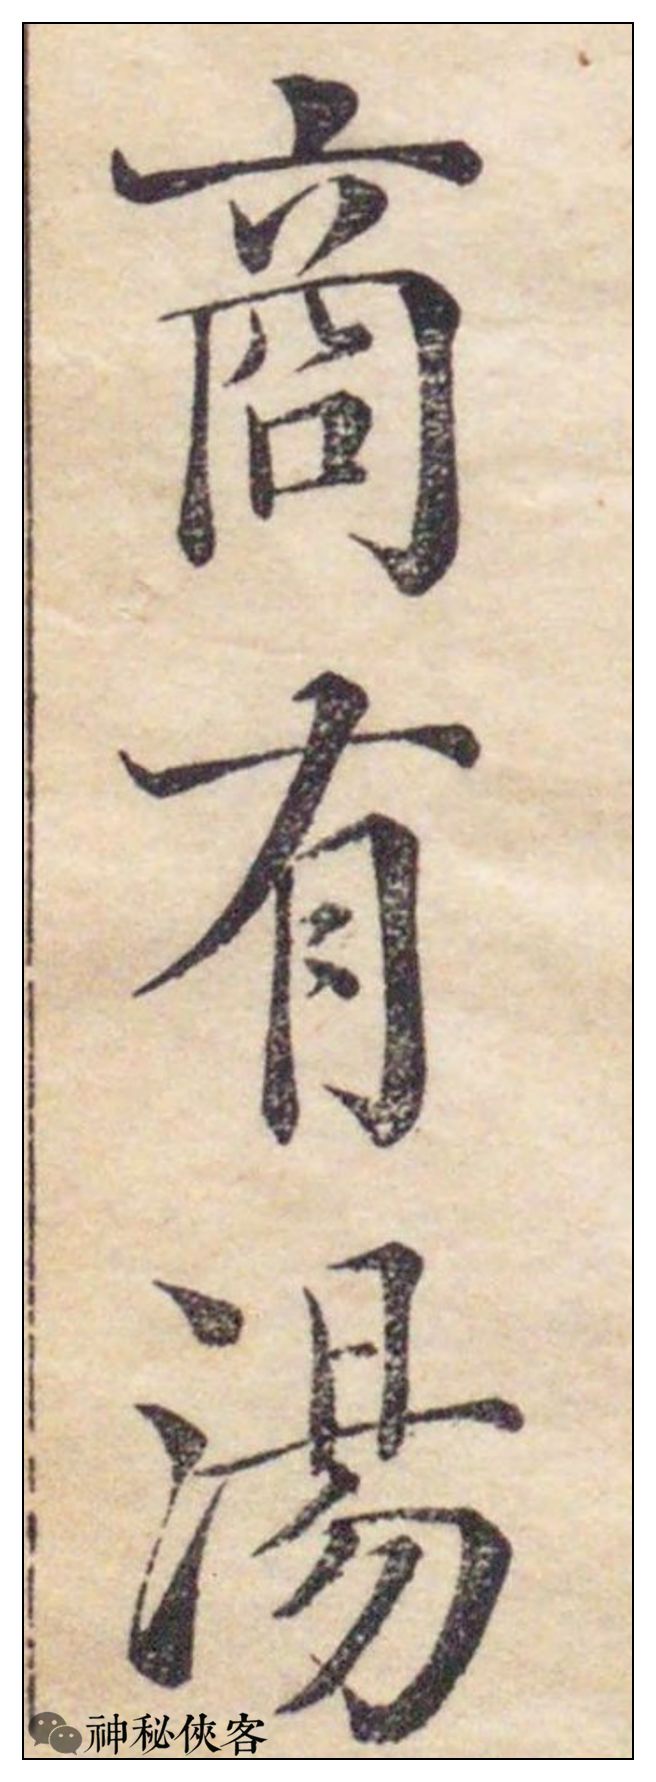 商有湯
神秘俠客